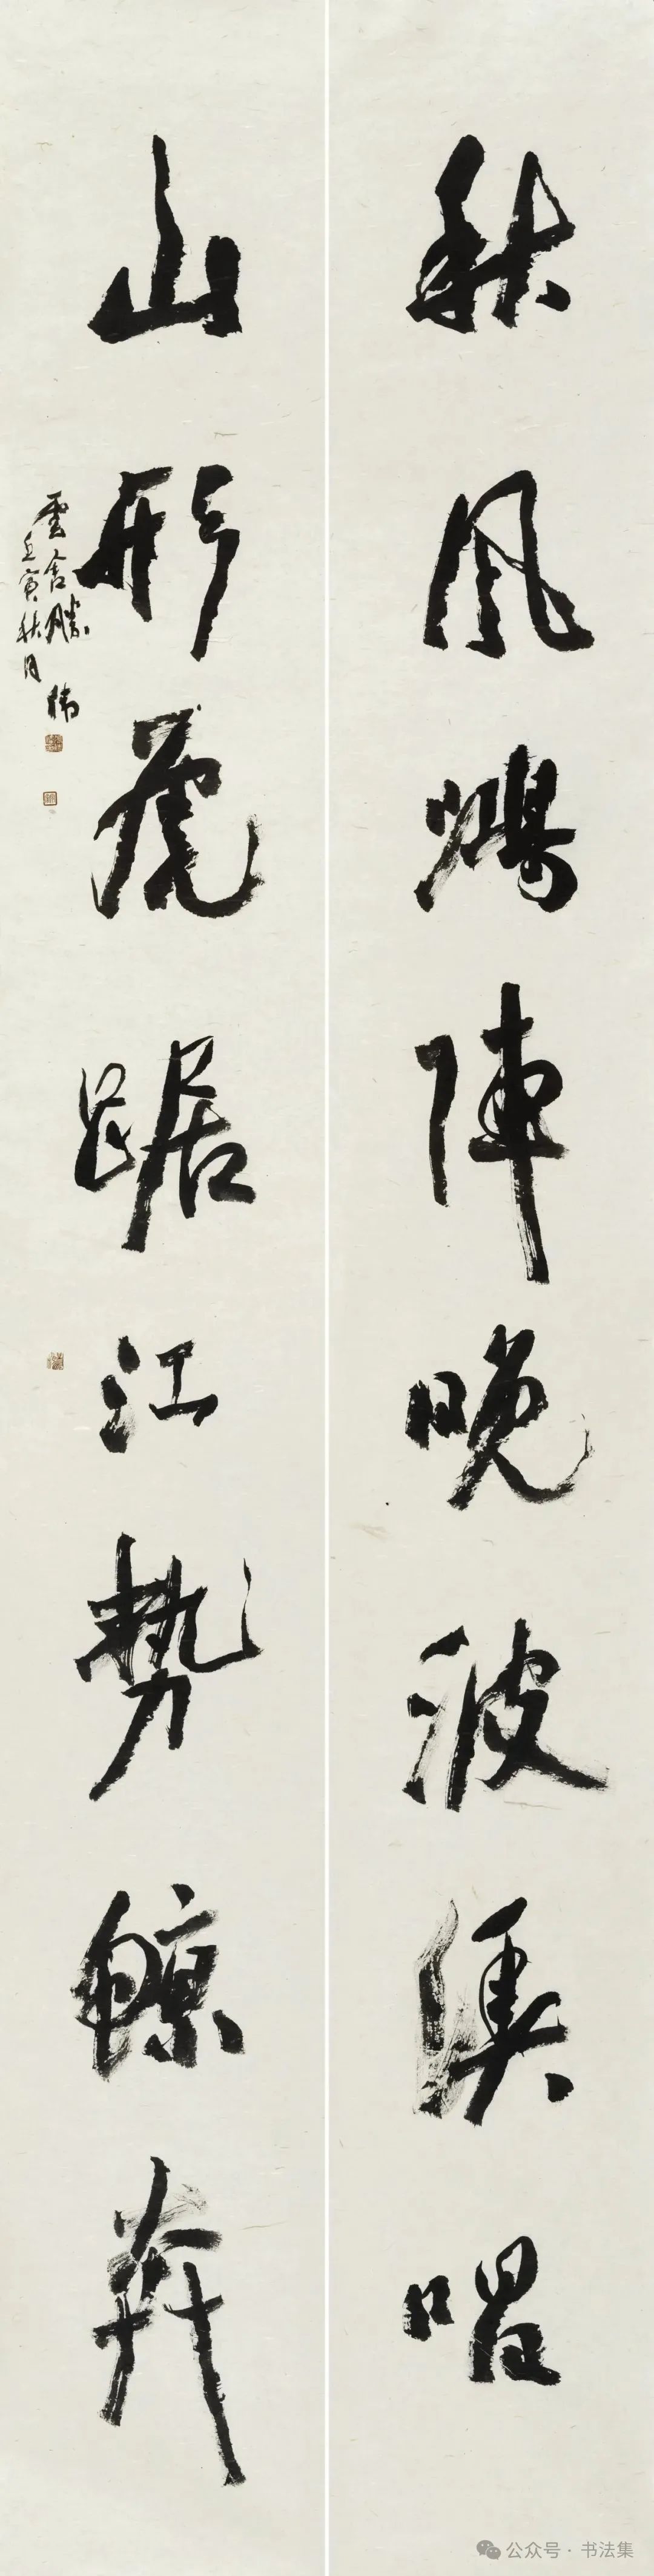 秋風鴻陣晚波漁唱
山形虎踞江勢鯨奔
雲舍勝偉
壬寅秋月
公众号 · 书法集